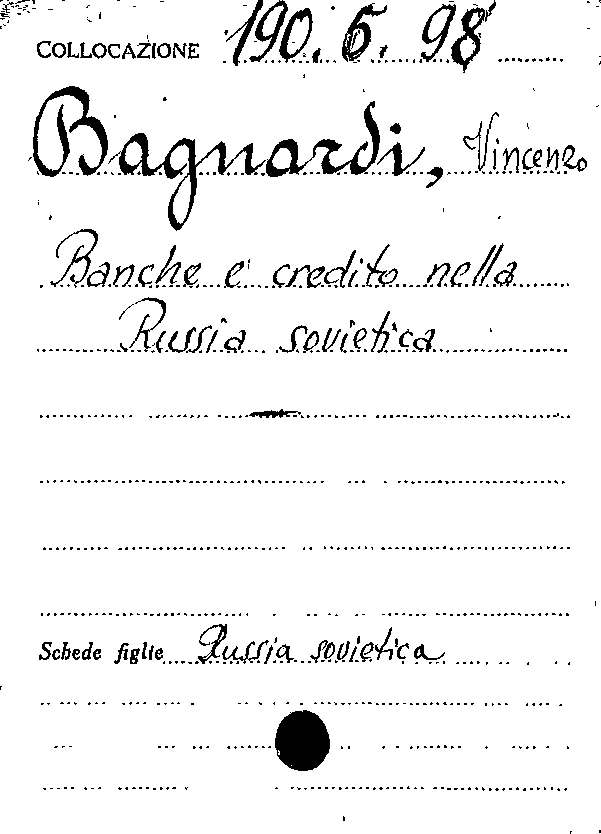 COLLOCAZIONE 190. 6. 98
Bagnardi, Vincenzo
Banche e credito nella
Russia sovietica
Schede figlie Russia sovietica